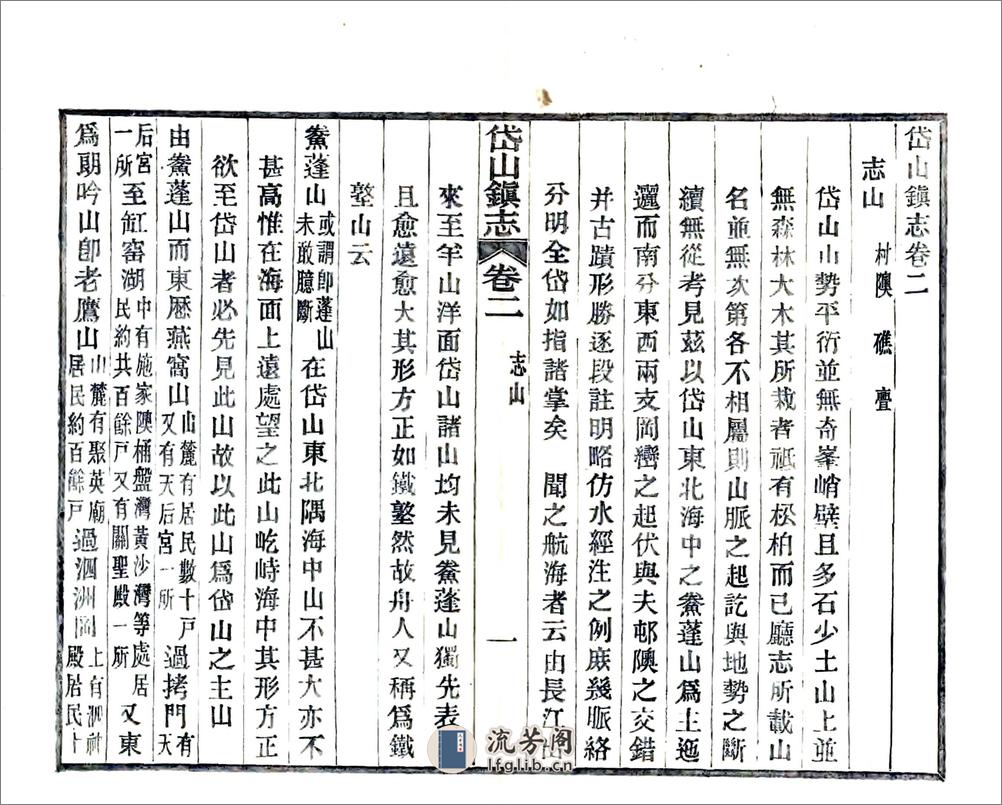 岱山鎮志卷二
志山　村隩　礁　亹
岱山山勢平衍並無奇峯峭壁且多石少土山上並
無森林大木其所栽者祗有松柏而已廳志所載山
名並無次第各不相屬則山脈之起訖與地勢之斷
續無從考見茲以岱山東北海中之鰲蓬山爲主迤
邐而南分東西兩支岡巒之起伏與夫邨隩之交錯
并古蹟形勝逐段註明略仿水經注之例庶幾脈絡
分明全岱如指諸掌矣　聞之航海者云由長江
岱山鎮志　卷二　志山　一
來至羊山洋面岱山諸山均未見鰲蓬山獨先表
且愈遠愈大其形方正如鐵墪然故舟人又稱爲鐵
墪山云
鰲蓬山或謂卽蓬山未敢臆斷在岱山東北隅海中山不甚大亦不
甚高惟在海面上遠處望之此山屹峙海中其形方正
欲至岱山者必先見此山故以此山爲岱山之主山
由鰲蓬山而東歷燕窩山山麓有居民數十戶又有天后宮一所過拷門有天
后宮一所至缸窰湖中有施家隩桶盤灣黃沙灣等處居民約共百餘戶又有關聖殿一所又東
爲期吟山卽老鷹山山麓有聚英廟居民約百餘戶過泗洲岡上有泗洲殿居民十
流芳阁
lfglib.cn